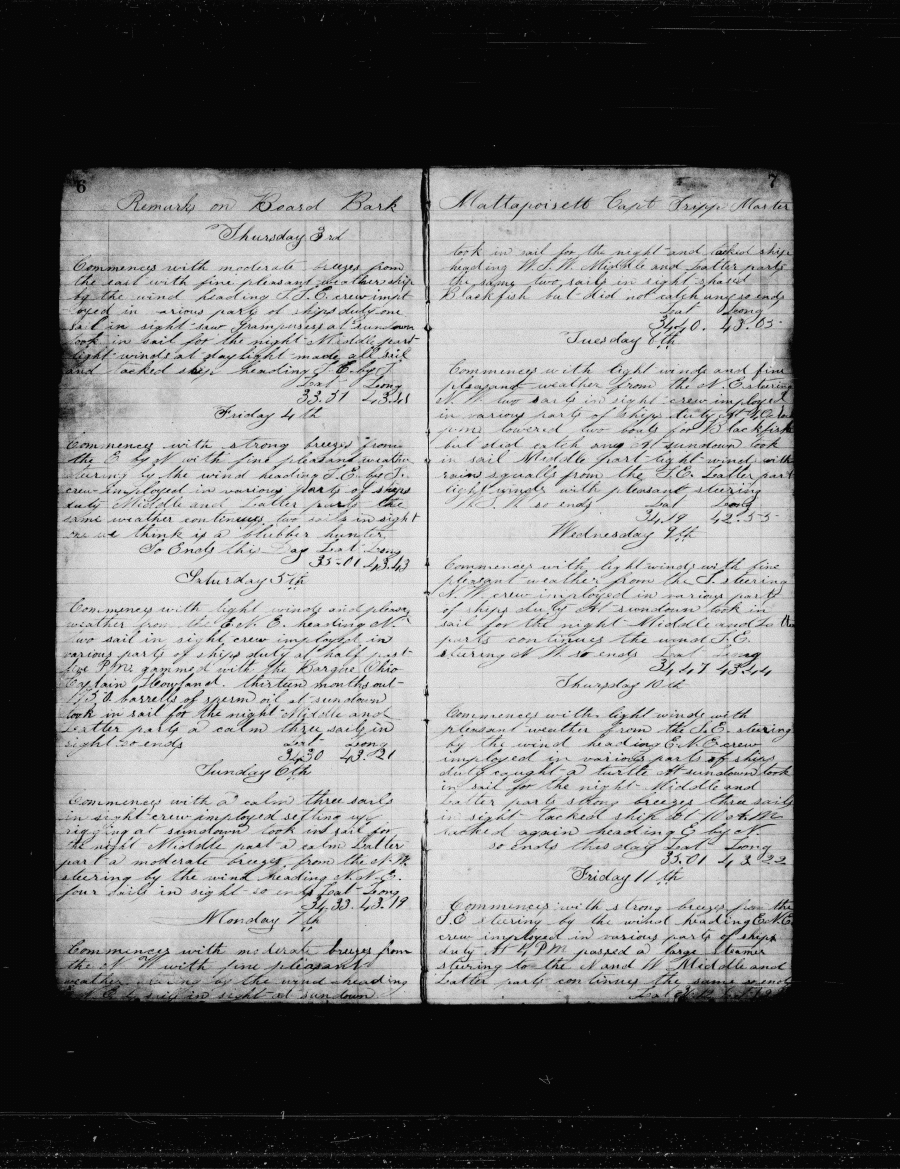 6
Remarks on Board Bark
Thursday 3rd
Commences with moderate breezes from
the east with fine pleasant weather ship
by the wind heading S.S.E. crew impl
oyed in arious parts of ships duty one
sail in sight saw Grampuses at sundown
took in sail for the night Middle part
light winds at daylight made all sail
and tacked ship heading
Lat Long
33.31 43.41
Friday 4th
Commences with strong breezes from
the E by N with fine pleasand weather
stearing by the wind heading S.E. by S.
crew employed in various parts of ships
duty Middle and Latter parts the
same weather continues two sails in sight
one we think is a blubber hunter
So Ends this Day Lat Long
35-01 43.43
Saturday 5th
Commences with light winds and pleas
weather from the E.N.E. heading N.
two sail in sight crew imployed in
various parts of ships duty at half past
five P.M. gammed with the Barque Ohio
Captain Howland. thirteen months out
barrells of sperm oil at sundown
took in sail for the night Middle and
Latter parts a calm three sails in
sight so ends Lat Long
34.30 43.21
Sunday 6th
Commences with a calm three sails
in sight crew imployed setting up
rigging at sundown took in sail for
the night Middle part a calm Latter
part a moderate breeze from the N.W.
steering by the wind heading N.N.E.
four sails in sight so ends Lat Long
34.33. 43.19
Monday 7th
Commences with moderate breezes from
the N W with fine pleasant
weather by the wind heading
sails in sight at sundown
7
Mattapoisett Capt Tripp Master
took in sail for the night and tacked ship
heading W.S.W. Middle and Latter parts
the same two sails in sight
Blackfish but did not catch any so ends
Lat Long
34.40. 43.05
Tuesday 8th
Commences with light winds and fine
pleasant weather from the N.E. stering
N.W. two sails in sight crew imployed
in various parts of ships duty At
p.m. lowered two boats for Blackfish
but did catch any At sundown took
in sail Middle part light wind with
rain squalls from the S.E. Latter part
light winds with pleasant steering
W.S.W. so ends Lat Long
34.19 42.55
Wednesday 9th
Commences with light winds with fine
pleasant weather from the S. steering
N.W. crew imployed in various parts
of ships duty At sundown took in
sail for the night Middle and
parts continues the wind S.E.
steering N W. so ends Lat Long
34.47 43.44
Thursday 10th
Commences with light winds with
pleasant weather from the S.E. steering
by the wind heading E.N.E. crew
imployed in various parts of ships
duty caught a turtle At sundown took
in sail for the night Middle and
Latter parts strong breezes three sails
in sight tacked ship
tacked again heading E by N.
so ends this day Lat Long
35.01 43 22
Friday 11th
Commences with strong breezes from the
S.E stearing by the wind heading E.N.E.
crew imployed in various parts of ships
duty At 4 P.M. passed a large steamer
steering to the N and W Middle and
Latter parts continues the same so ends
Lat